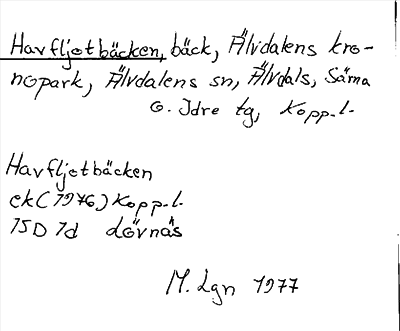 Havfljotbäcken, bäck, Älvdalens kro-
nopark, Älvdalens sn, Älvdals, Särna
o. Idre tg, Kopp.l.
Havfljotbäcken
ek (1976) Kopp.l.
15D 1d Lövnäs
M. Lgn 1977